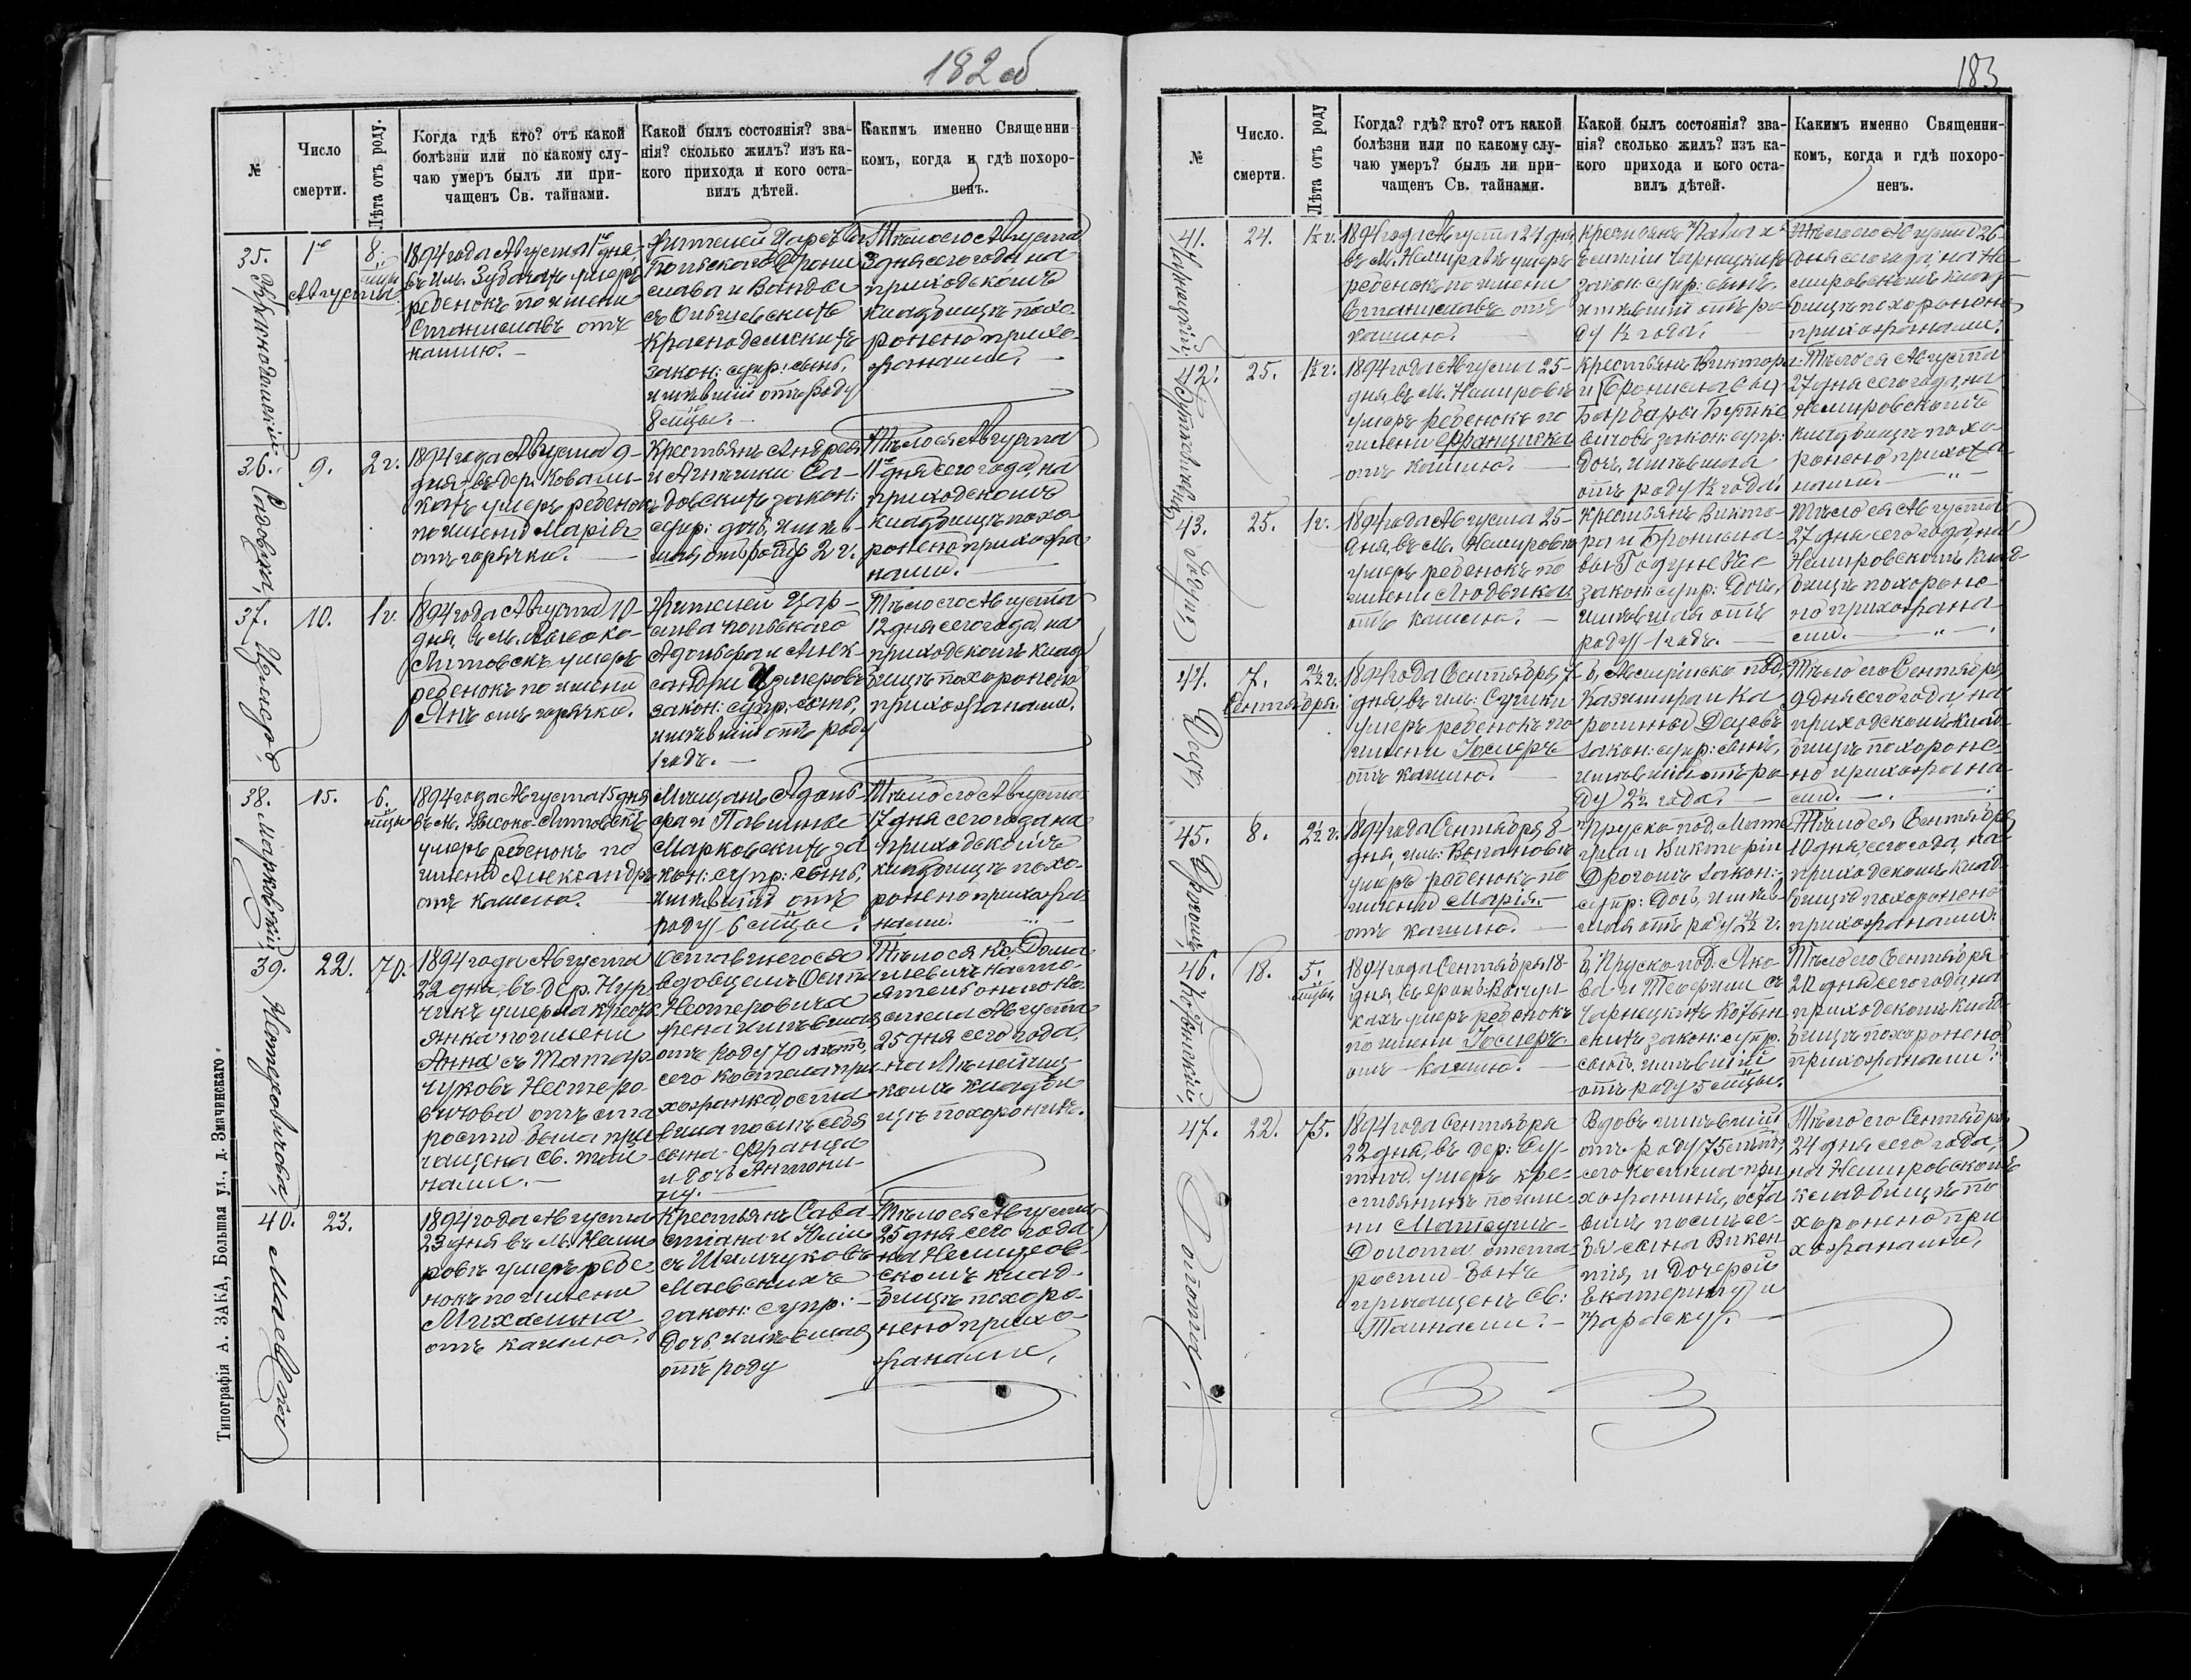 182 об
№
Число
смерти.
Лѣта отъ роду.
Когда гдѣ кто? отъ какой
болѣзни или по какому слу-
чаю умеръ былъ ли при-
чащенъ Св. тайнами.
Какой былъ состоянія? зва-
нія? сколько жилъ? изъ ка-
кого прихода и кого оста-
вилъ дѣтей.
Каким именно Священни
комъ, когда и гдѣ похоро-
ненъ.
35.
1го
Августа
8.
мцы
1894 года Августа 1го дня,
въ им. Зубачахъ умеръ
ребенокъ по имени
Станиславъ отъ
кашлю.
Жителей Царства
Польскаго Брони
слава и Ванды
съ
Краснодемскихъ
закон: супр: сынъ,
жившій отъ роду
8 мцы.
Тѣло его Августа
3 дня сего года на
приходскомъ
кладбищѣ похо-
ронено прихо-
жанами.
36. Садовска,
9.
2 г.
1894 года Августа 9-
дня, въ дер.
умеръ ребенок
по имени Марія
отъ горячки.
Крестьянъ Андрея
и Агнешки Са-
довскихъ закон:
супр: дочь, жив-
шая отъ роду 2 г.
Тѣло ея Августа
11го дня сего года, на
приходскомъ
кладбищѣ похо-
ронено прихожа-
нами.
37. Цимеръ.
10.
1 г.
1894 года Августа 10-
дня, въ м. Высоко-
Литовскѣ умеръ
ребенокъ по имени
Янъ отъ горячки.
Жителей Цар-
ства Польскаго
Адольфа и Алек-
сандры Цимеровъ
закон: супр: сынъ,
жившій отъ роду
1 годъ.
Тѣло его Августа
12 дня сего года, на
приходскомъ клад-
бищѣ похоронено
прихожанами.
38. Марковскій,
15.
6.
мцы
1894 года Августа 15 дня
въ м. Высоко-Литовскѣ
умеръ ребенокъ по
имени Александръ
отъ кашлю.
Мѣщанъ Адоль-
фа и Павлины
Марковскихъ за-
кон: супр: сынъ,
жившій отъ
роду 6 мцы.
Тѣло его Августа
17 дня сего года на
приходскомъ
кладбищѣ похо-
ронено прихожа-
нами.
39. Нестеровичова,
22.
70.
1894 года Августа
22 дня, въ дер. Нур-
чикъ умерла кресть-
янка по имени
Анна съ Татар-
чуковъ Нестеро-
вичова отъ ста-
рости была при-
чащена Св. тай-
нами.
Оставшегося
вдовцемъ
Нестеровича
жена жившая
отъ роду 70 лѣтъ,
сего костела при-
хожанка, оста-
вила послѣ себя
сына Франца
и дочь Антони-
ну.
Тѣло ея Кс. Дома-
шевичъ
25 дня сего года,
на
комъ кладби-
щѣ похоронилъ.
40. Маевска
23.
1894 года Августа
23 дня въ м. Неми-
ровѣ умеръ ребе-
нокъ по имени
Михалина
отъ кашлю.
Крестьянъ Сава-
стіана и Юліи
съ Шимчуковъ
Маевскихъ
закон: супр:
дочь, жившая
отъ роду
Тѣло ея Августа
25 дня сего года
на Немиров-
скомъ клад-
бищѣ похоро-
нено прихо-
жанами.
Типографія А. ЗАКА, Большая ул., д. Змачинскаго
183
№
Число.
смерти.
Лѣта отъ роду
Когда? гдѣ? кто? отъ какой
болѣзни или по какому слу-
чаю умеръ? былъ ли при-
чащенъ Св. тайнами.
Какой былъ состоянія? зва-
нія? сколько жилъ? изъ ка-
кого прихода и кого оста-
вилъ дѣтей.
Какимъ именно Священни-
комъ, когда и гдѣ похоро-
ненъ.
41. Чарнецкій,
24.
1½ г.
1894 года Августа 24 дня
въ М. Немировѣ умеръ
ребенокъ по имени
Станиславъ отъ
кашлю.
Крестьянъ Павла и
Чарнецкихъ
закон: супр: сынъ,
жившій отъ ро-
ду 1½ года.
Тѣло его Августа 26-
дня сего года, на Не-
мировскомъ клад-
бищѣ похоронено
прихожанами.
42.
25.
1½ г.
1894 года Августа 25-
дня, въ М. Немировѣ
умеръ ребенокъ по
имени Франциска
отъ кашлю.
Крестьянъ Виктора
и Брониславы
закон: супр:
дочь, жившая
отъ роду 1½ года.
Тѣло ея Августа
27 дня сего года, на
Немировскомъ
кладбищѣ похо-
ронено прихожа-
нами.
43. Годунъ
25.
1 г.
1894 года Августа 25-
дня, въ М. Немировѣ
умеръ ребенокъ по
имени Людвика
отъ кашлю.
Крестьянъ Викто-
ра и Бронисла-
вы
закон: супр: дочь,
жившая отъ
роду 1 годъ.
Тѣло ея Августа
27 дня сего года, на
Немировскомъ клад-
бищѣ похороне-
но прихожана-
ми.
44. Децъ
7.
Сентября.
2½ г.
1894 года Сентября 7
дня, въ им: Сутки
умеръ ребенокъ по
имени Іосифъ
отъ кашлю.
Б, Австрійско под,
Казимира и Ка-
ролины Децевъ
закон: супр: сынъ,
жившій отъ ро-
ду 2½ года.
Тѣло его Сентября
9 дня сего года, на
приходскомъ клад-
бищѣ похороне-
но прихожана-
ми.
45. Дрогошъ
8.
2½ г.
1894 года Сентября 8-
дня, им: Волановѣ
умеръ ребенокъ по
имени Марія
отъ кашлю.
Прусско под. Мате-
уша и Викторіи
Дрогошъ закон:
супр: дочь, жив-
шая отъ роду 2½ г.
Тѣло ея Сентября
10 дня, сего года, на
приходскомъ клад-
бищѣ похоронено
прихожанами.
46.
18.
5.
мцы
1894 года Сентября 18-
дня, въ
кахъ умеръ ребенокъ
по имени Іосифъ
отъ кашлю.
Б, Прусско-под: Яко-
ва и съ
Чарнецкихъ
закон: супр.
сынъ, жившій
отъ роду 5 мцы.
Тѣло его Сентября
20 дня сего года, на
приходскомъ клад-
бищѣ похоронено
прихожанами.
47. Долота.
22.
75.
1894 года Сентября
22 дня, въ дер: Сут-
кахъ умеръ кре-
стьянинъ по име-
ни Матеушъ
Долота отъ ста-
рости былъ
причащенъ Св:
Тайнами.
Вдовъ жившій
отъ роду 75 лѣтъ,
сего костела при-
хожанинъ, оста-
вилъ послѣ се-
бя сына Викен-
тія, и дочерей
Екатерину и
Параску.
Тѣло его Сентября
24 дня сего года,
на Немировскомъ
кладбищѣ по-
хоронено при-
хожанами.